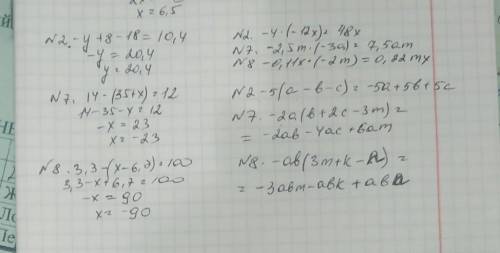 x = 6,5
№2. -y+8-18=10,4
-y = 20,4
y = 20,4
№7. 14-(35+x)=12
14-35-x=12
-x = 23
x = -23
№8. 3,3-(x-6,7)=100
3,3-x+6,7=100
-x = 90
x = -90
№2. -4·(-12x)=48x
№7. -2,5m·(-3a)=7,5am
№8 -0,11x·(-2m)=0,22mx
№2 -5(a-b-c)=-5a+5b+5c
№7. -2a(b+2c-3m)=
= -2ab-4ac+6am
№8. -ab(3m+k-
= -3abm-abk+ab